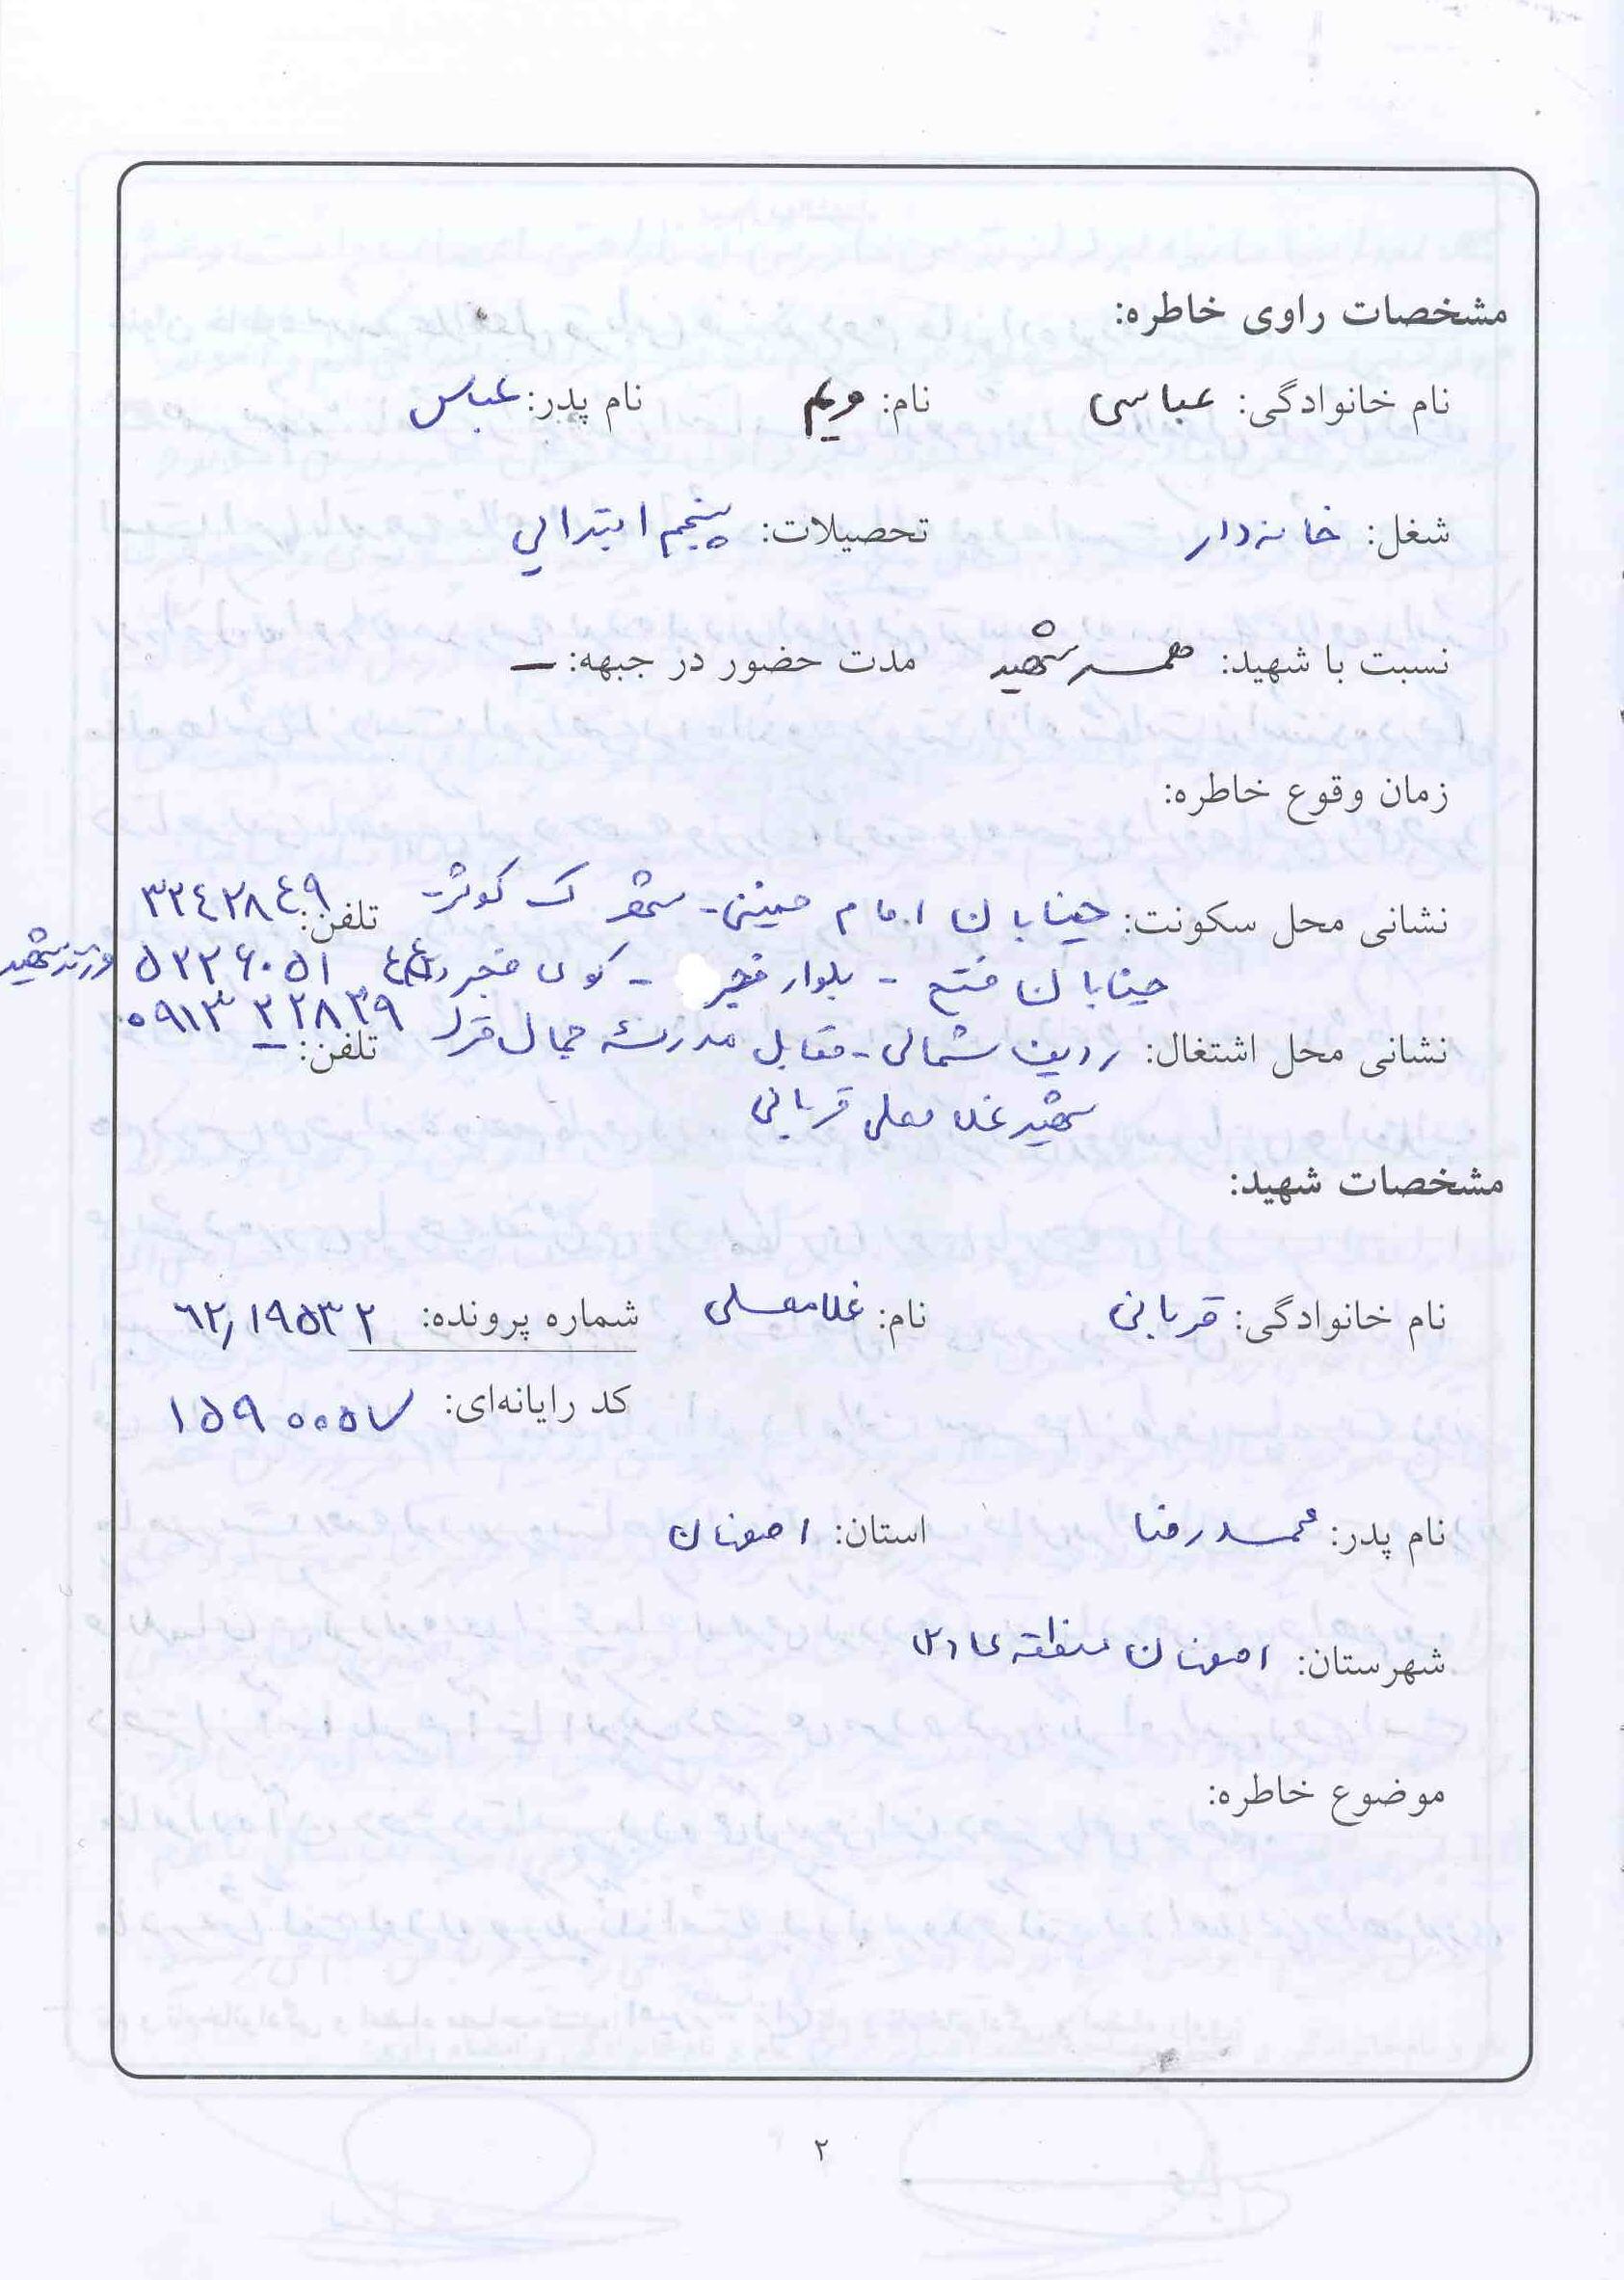 مشخصات راوی خاطره:
نام خانوادگی: عباسی نام: مریم نام پدر: عباس
شغل: خانه‌دار تحصیلات: پنجم ابتدائی
نسبت با شهید: همسر شهید مدت حضور در جبهه: –
زمان وقوع خاطره:
نشانی محل سکونت: خیابان امام خمینی - شهرک کوثر - تلفن: ۳۲۴۲۸۴۹
خیابان فتح - بلوار فجر - کوی فجر ۵۳۲۶۰۵۱ فرزند شهید
نشانی محل اشتغال: ردیف شمالی - مقابل مدرسه جمال تلفن: – ۰۹۱۳۲۲۸۳۹
شهید غلامعلی قربانی
مشخصات شهید:
نام خانوادگی: قربانی نام: غلامعلی شماره پرونده: ۶۲,۱۹۵۳۲
کد رایانه‌ای: ۱۵۹۰۰۰۵۷
نام پدر: محمدرضا استان: اصفهان
شهرستان: اصفهان منطقه
موضوع خاطره:
۲